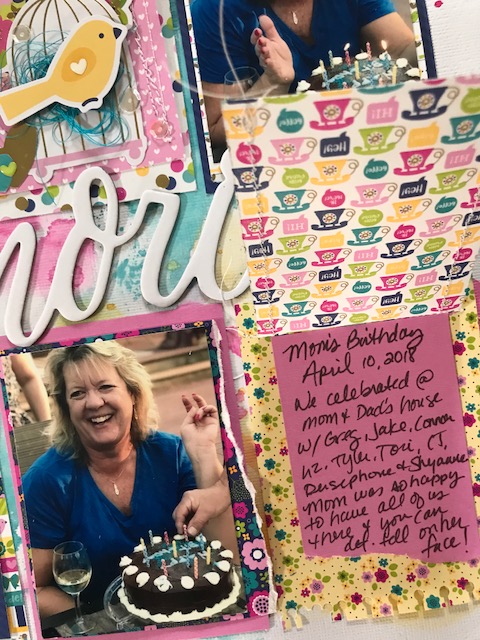 Mom's Birthday
April 10, 2018
We celebrated @
mom & Dad's house
w/ Greg, Jake, Connor
Liz, Tyler, Tori, CJ,
& Shyanne
Mom was so happy
to have all of us
there & you can
def. tell on her
face!